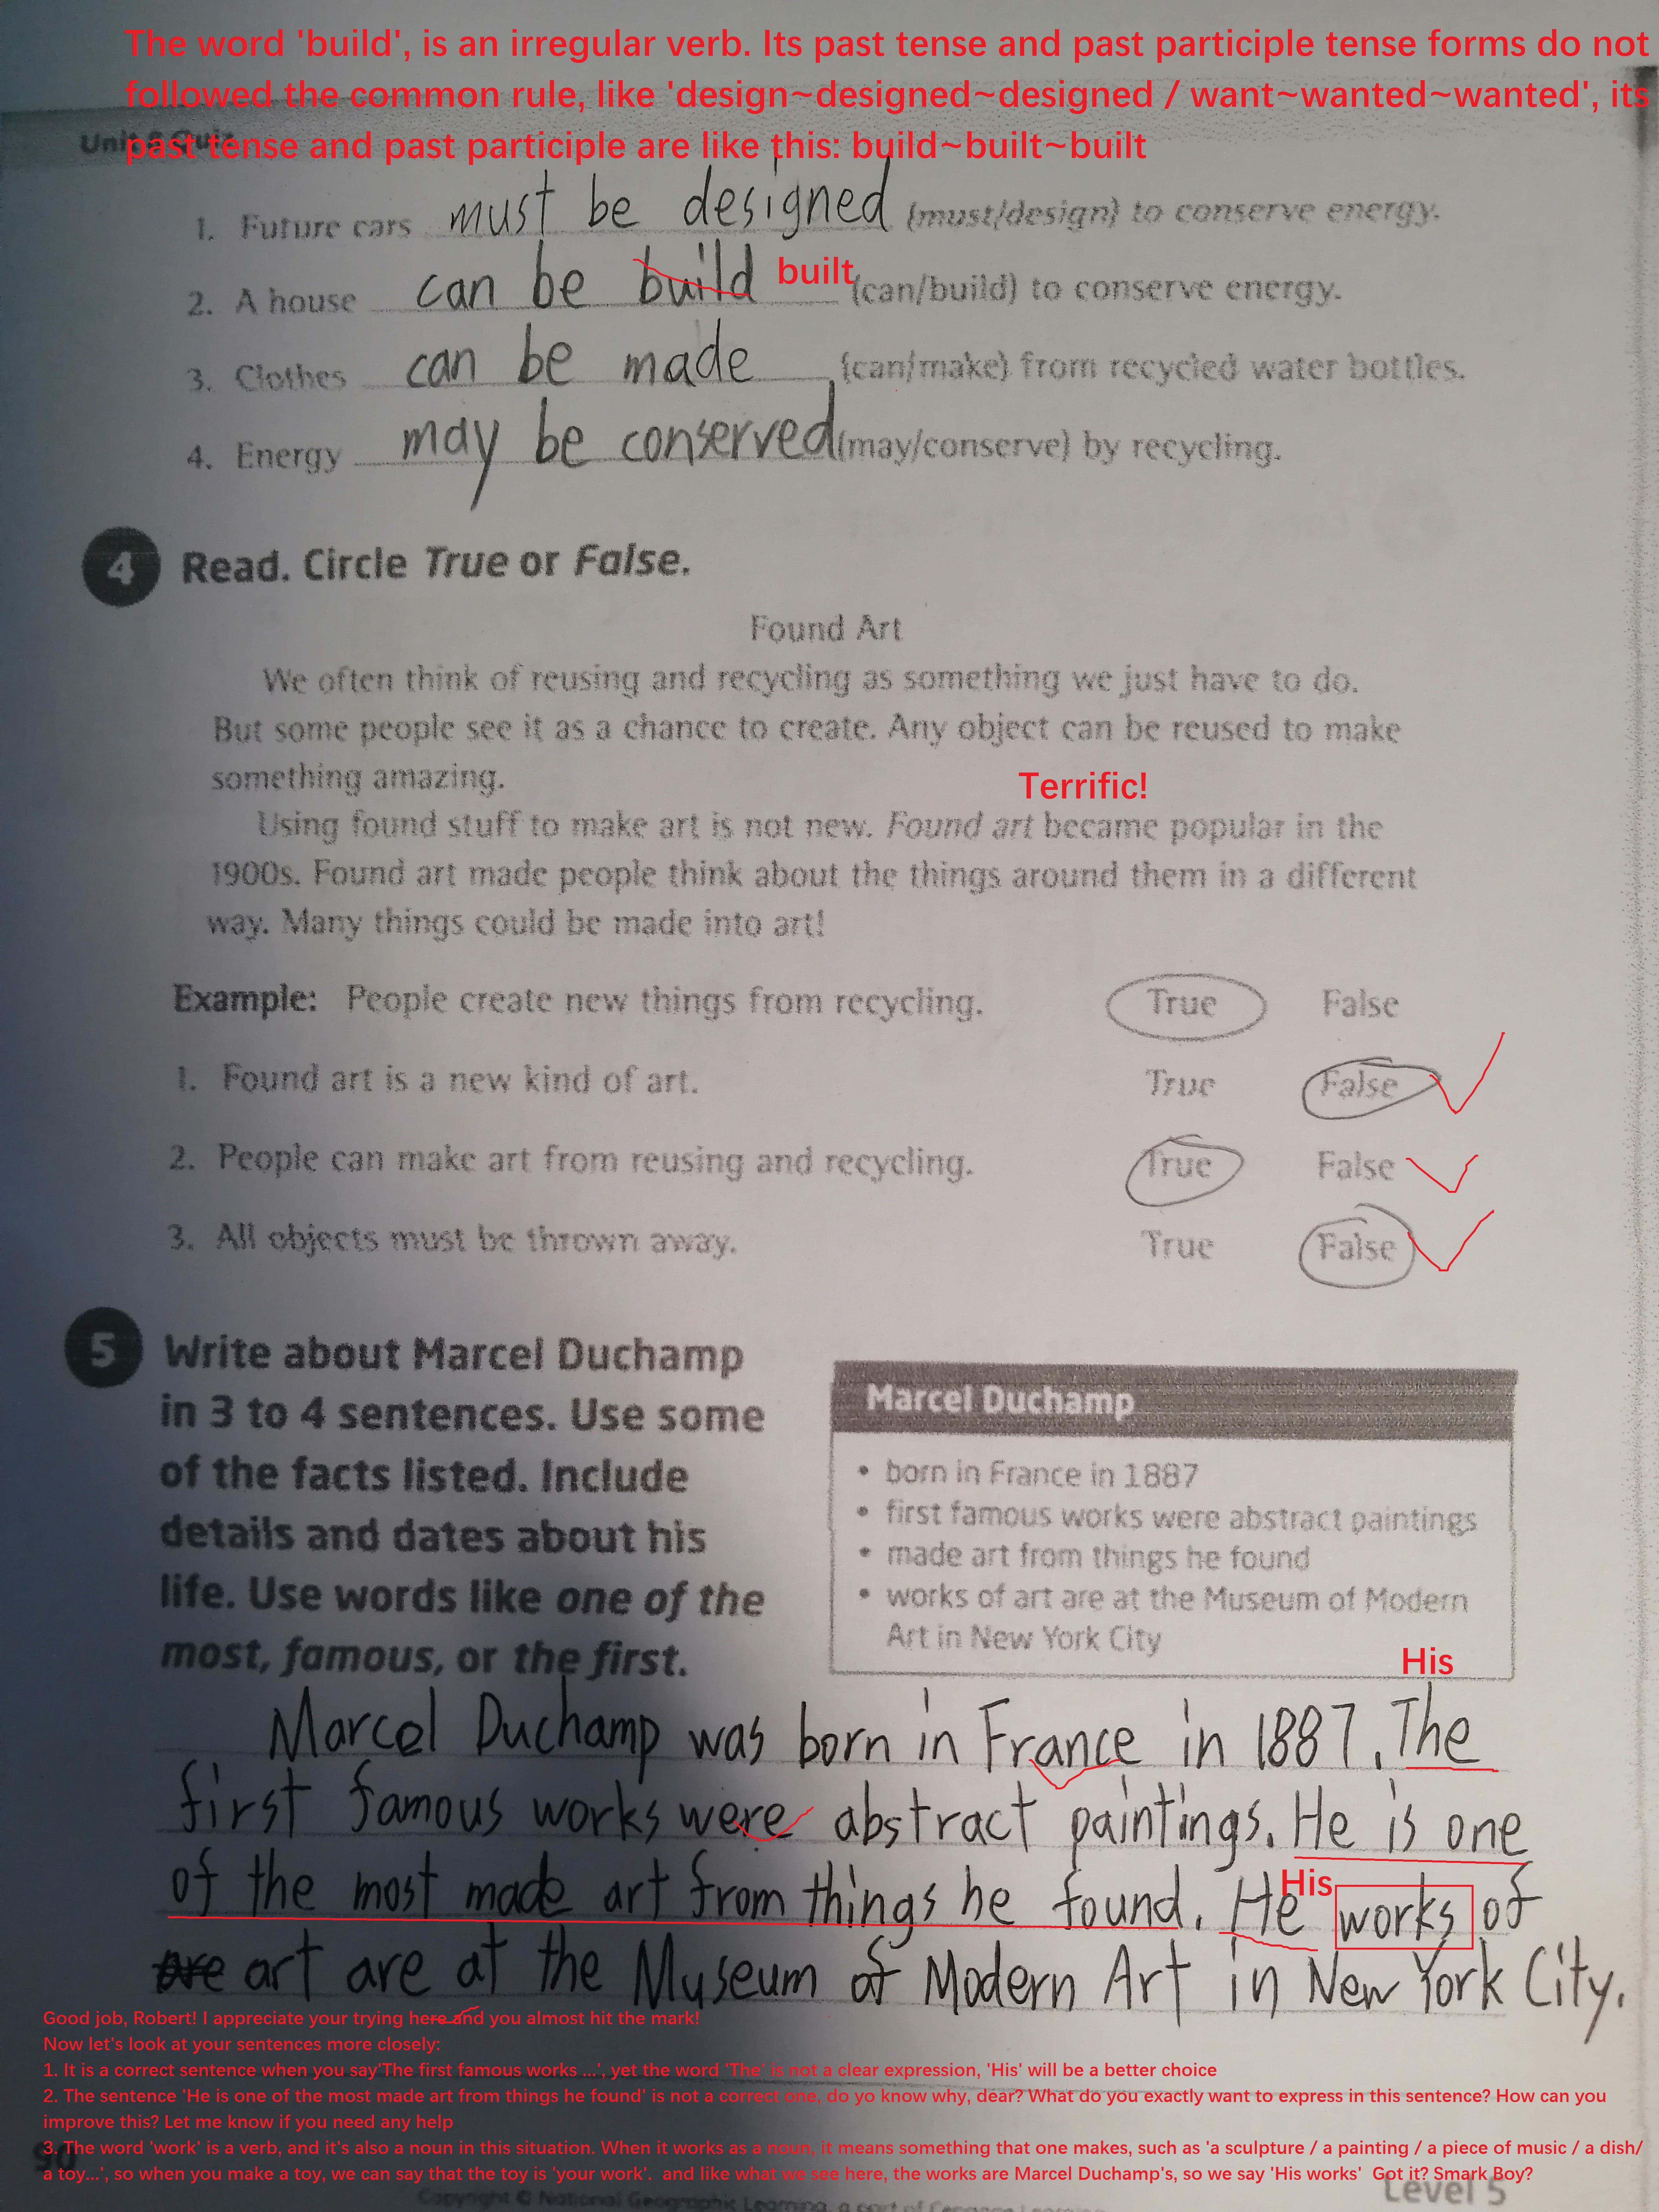 The word 'build', is an irregular verb. Its past tense and past participle tense forms do not
followed the common rule, like 'design~designed~designed / want~wanted~wanted', its
past tense and past participle are like this: build~built~built
Unit 6 Quiz
1. Future cars must be designed (must/design) to conserve energy.
2. A house can be build built (can/build) to conserve energy.
3. Clothes can be made (can/make) from recycled water bottles.
4. Energy may be conserved (may/conserve) by recycling.
4 Read. Circle True or False.
Found Art
We often think of reusing and recycling as something we just have to do.
But some people see it as a chance to create. Any object can be reused to make
something amazing.
Terrific!
Using found stuff to make art is not new. Found art became popular in the
1900s. Found art made people think about the things around them in a different
way. Many things could be made into art!
Example: People create new things from recycling. True False
1. Found art is a new kind of art. True False
2. People can make art from reusing and recycling. True False
3. All objects must be thrown away. True False
5 Write about Marcel Duchamp
in 3 to 4 sentences. Use some
of the facts listed. Include
details and dates about his
life. Use words like one of the
most, famous, or the first.
Marcel Duchamp
• born in France in 1887
• first famous works were abstract paintings
• made art from things he found
• works of art are at the Museum of Modern
Art in New York City
His
Marcel Duchamp was born in France in 1887. The
first famous works were abstract paintings. He is one
of the most made art from things he found. He His works of
are art are at the Museum of Modern Art in New York City.
Good job, Robert! I appreciate your trying here and you almost hit the mark!
Now let's look at your sentences more closely:
1. It is a correct sentence when you say'The first famous works ...', yet the word 'The' is not a clear expression, 'His' will be a better choice
2. The sentence 'He is one of the most made art from things he found' is not a correct one, do yo know why, dear? What do you exactly want to express in this sentence? How can you
improve this? Let me know if you need any help
3. The word 'work' is a verb, and it's also a noun in this situation. When it works as a noun, it means something that one makes, such as 'a sculpture / a painting / a piece of music / a dish/
a toy...', so when you make a toy, we can say that the toy is 'your work'. and like what we see here, the works are Marcel Duchamp's, so we say 'His works' Got it? Smark Boy?
90
Level 5
Copyright © National Geographic Learning, a part of Cengage Learning